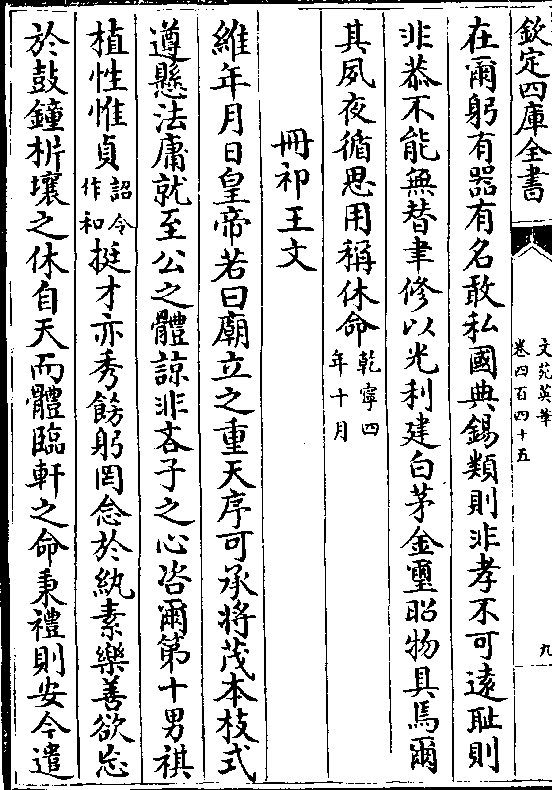 欽定四庫全書
文苑英華
卷四百四十五
九
在爾躬有器有名敢私國典錫類則非孝不可遠耻則
非恭不能無替聿修以光利建白茅金璽昭物具焉爾
其夙夜循思用稱休命乾寧四年十月
冊祁王文
維年月日皇帝若曰廟立之重天序可承將茂本枝式
遵懸法庸就至公之體諒非吝子之心咨爾第十男祺
植性惟貞詔令作和挺才亦秀飭躬罔念於紈素樂善欲忘
於鼓鐘析壤之休自天而體臨軒之命秉禮則安今遣